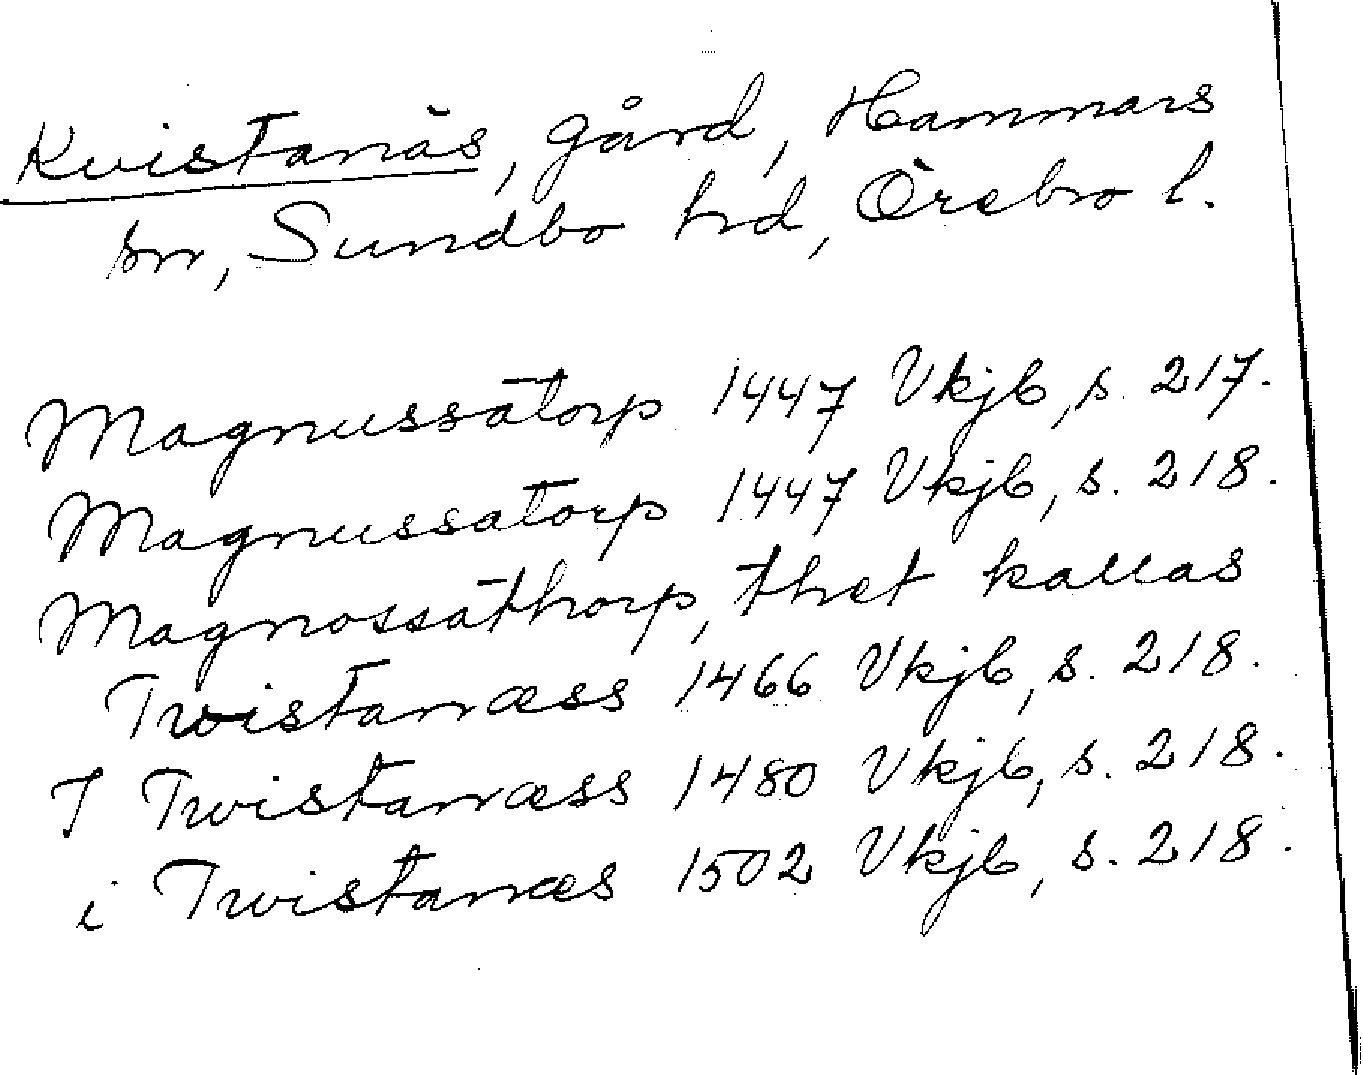 Kvistanäs, gård, Hammars
sn, Sundbo hd, Örebro l.
Magnussatorp 1447 Vkjb, s. 217.
Magnussatorp 1447 Vkjb, s. 218.
Magnossathorp, thet kallas
Twistanæss 1466 Vkjb, s. 218.
J Twistanæss 1480 Vkjb, s. 218.
i Twistanæs 1502 Vkjb, s. 218.